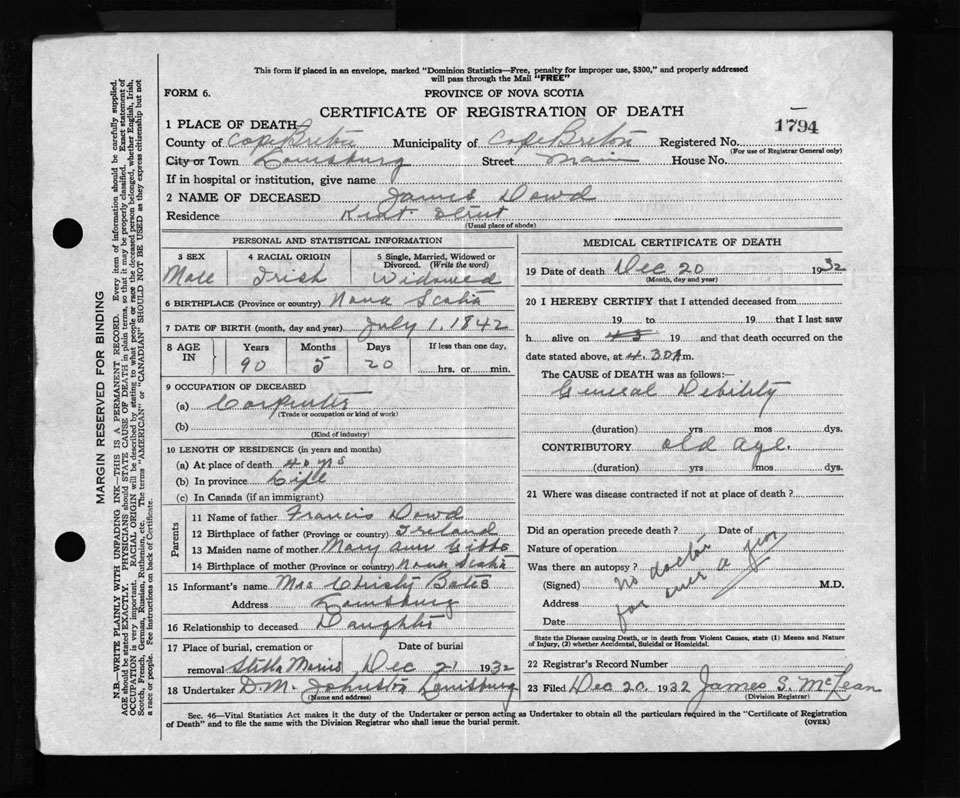 This form if placed in an envelope, marked "Dominion Statistics—Free, penalty for improper use, $300," and properly addressed
will pass through the Mail "FREE"
FORM 6.
PROVINCE OF NOVA SCOTIA
CERTIFICATE OF REGISTRATION OF DEATH
1794
1 PLACE OF DEATH
County of Cape Breton Municipality of Cape Breton Registered No.
(For use of Registrar General only)
City or Town Louisburg Street Main House No.
If in hospital or institution, give name
2 NAME OF DECEASED James Dowd
Residence Kent Street
(Usual place of abode)
PERSONAL AND STATISTICAL INFORMATION
3 SEX 4 RACIAL ORIGIN 5 Single, Married, Widowed or
Divorced. (Write the word)
Male Irish Widowed
6 BIRTHPLACE (Province or country) Nova Scotia
7 DATE OF BIRTH (month, day and year) July 1, 1842
8 AGE IN Years Months Days If less than one day,
90 5 20 hrs. or min.
9 OCCUPATION OF DECEASED
(a) Carpenter
(Trade or occupation or kind of work)
(b)
(Kind of industry)
10 LENGTH OF RESIDENCE (in years and months)
(a) At place of death 40 yrs
(b) In province Life
(c) In Canada (if an immigrant)
Parents
11 Name of father Francis Dowd
12 Birthplace of father (Province or country) Ireland
13 Maiden name of mother Mary Ann Gibbo
14 Birthplace of mother (Province or country) Nova Scotia
15 Informant's name Mrs Christy Bates
Address Louisburg
16 Relationship to deceased Daughter
17 Place of burial, cremation or Date of burial
removal Stella Maris Dec 21 1932
18 Undertaker D.M. Johnston Louisburg
(Name and address)
MEDICAL CERTIFICATE OF DEATH
19 Date of death Dec 20 1932
(Month, day and year)
20 I HEREBY CERTIFY that I attended deceased from
19 to 19 that I last saw
h alive on 19 and that death occurred on the
date stated above, at 4.30 A m.
The CAUSE of DEATH was as follows:—
General Debility
(duration) yrs mos dys.
CONTRIBUTORY old age.
(duration) yrs mos dys.
21 Where was disease contracted if not at place of death?
Did an operation precede death? Date of
Nature of operation
Was there an autopsy?
(Signed) M.D.
Address
Date
no doctor
for over a year
State the Disease causing Death, or in death from Violent Causes, state (1) Means and Nature
of Injury, (2) whether Accidental, Suicidal or Homicidal.
22 Registrar's Record Number
23 Filed Dec 20 1932 James S. McLean
(Division Registrar)
Sec. 46—Vital Statistics Act makes it the duty of the Undertaker or person acting as Undertaker to obtain all the particulars required in the "Certificate of Registration
of Death" and to file the same with the Division Registrar who shall issue the burial permit. (OVER)
MARGIN RESERVED FOR BINDING
N.B. WRITE PLAINLY WITH UNFADING INK—THIS IS A PERMANENT RECORD. Every item of information should be carefully supplied.
AGE should be stated EXACTLY. PHYSICIANS should STATE CAUSE OF DEATH in plain terms, so that it may be properly classified. Exact statement of
OCCUPATION is very important. RACIAL ORIGIN will be described by stating to what people or race the deceased person belonged, whether English, Irish,
Scotch, French, German, Russian, Ruthenian, etc. The terms "AMERICAN" or "CANADIAN" SHOULD NOT BE USED as they express citizenship but not
a race or people. See instructions on back of Certificate.